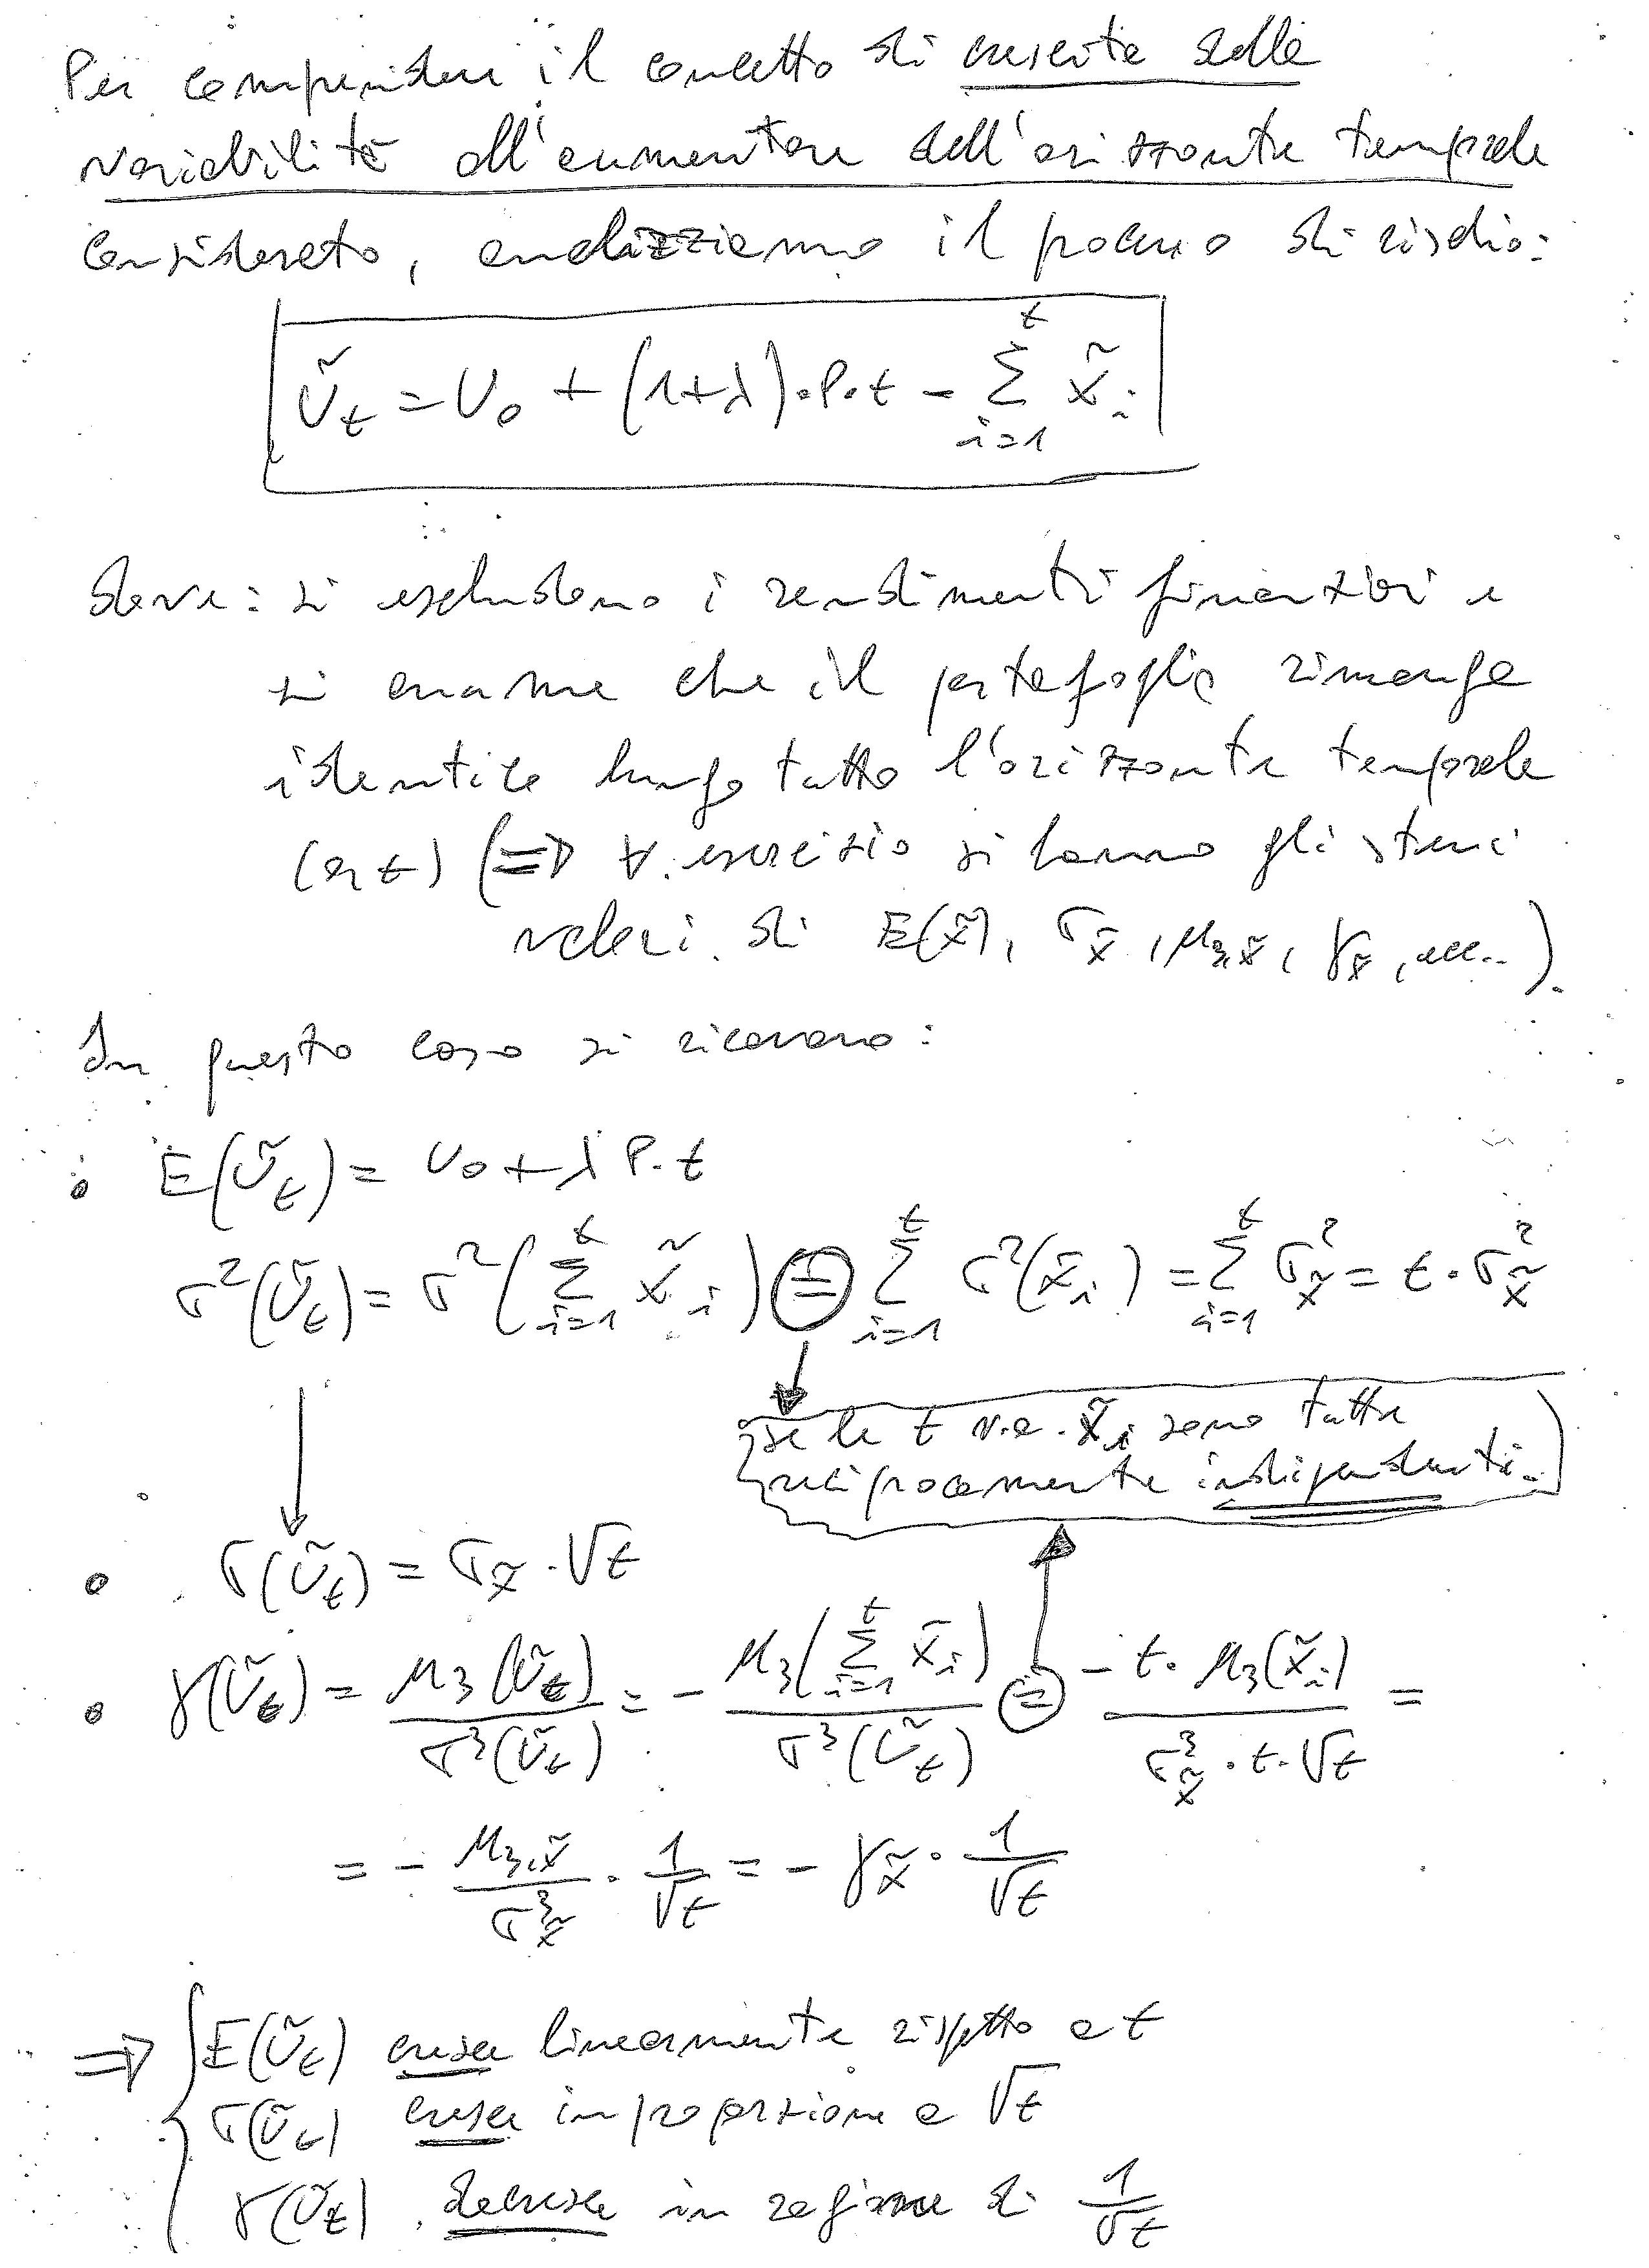 Per comprendere il concetto di crescita della
variabilità all'aumentare dell'orizzonte temporale
considerato, analizziamo il processo di rischio:
Ũ_t = U_0 + (1+λ)·P·t - Σ_{i=1}^{t} X̃_i
dove: si escludono i rendimenti finanziari e
si assume che il portafoglio rimanga
identico lungo tutto l'orizzonte temporale
(0,t) (⇒ ∀ esercizio si hanno gli stessi
valori di E(X̃), σ_X̃, μ_{3,X̃}, γ_X̃, ecc..).
In questo caso si ricavano:
• E(Ũ_t) = U_0 + λ P·t
σ²(Ũ_t) = σ²(Σ_{i=1}^{t} X̃_i) = Σ_{i=1}^{t} σ²(X̃_i) = Σ_{i=1}^{t} σ²_X̃ = t·σ²_X̃
se le t v.a. X̃_i sono tutte
reciprocamente indipendenti.
• σ(Ũ_t) = σ_X̃·√t
• γ(Ũ_t) = μ_3(Ũ_t) / σ³(Ũ_t) = - μ_3(Σ_{i=1}^{t} X̃_i) / σ³(Ũ_t) = - t·μ_3(X̃_i) / σ³_X̃·t·√t =
= - μ_{3,X̃} / σ³_X̃ · 1/√t = - γ_X̃ · 1/√t
⇒ { E(Ũ_t) cresce linearmente rispetto a t
σ(Ũ_t) cresce in proporzione a √t
γ(Ũ_t) decresce in ragione di 1/√t